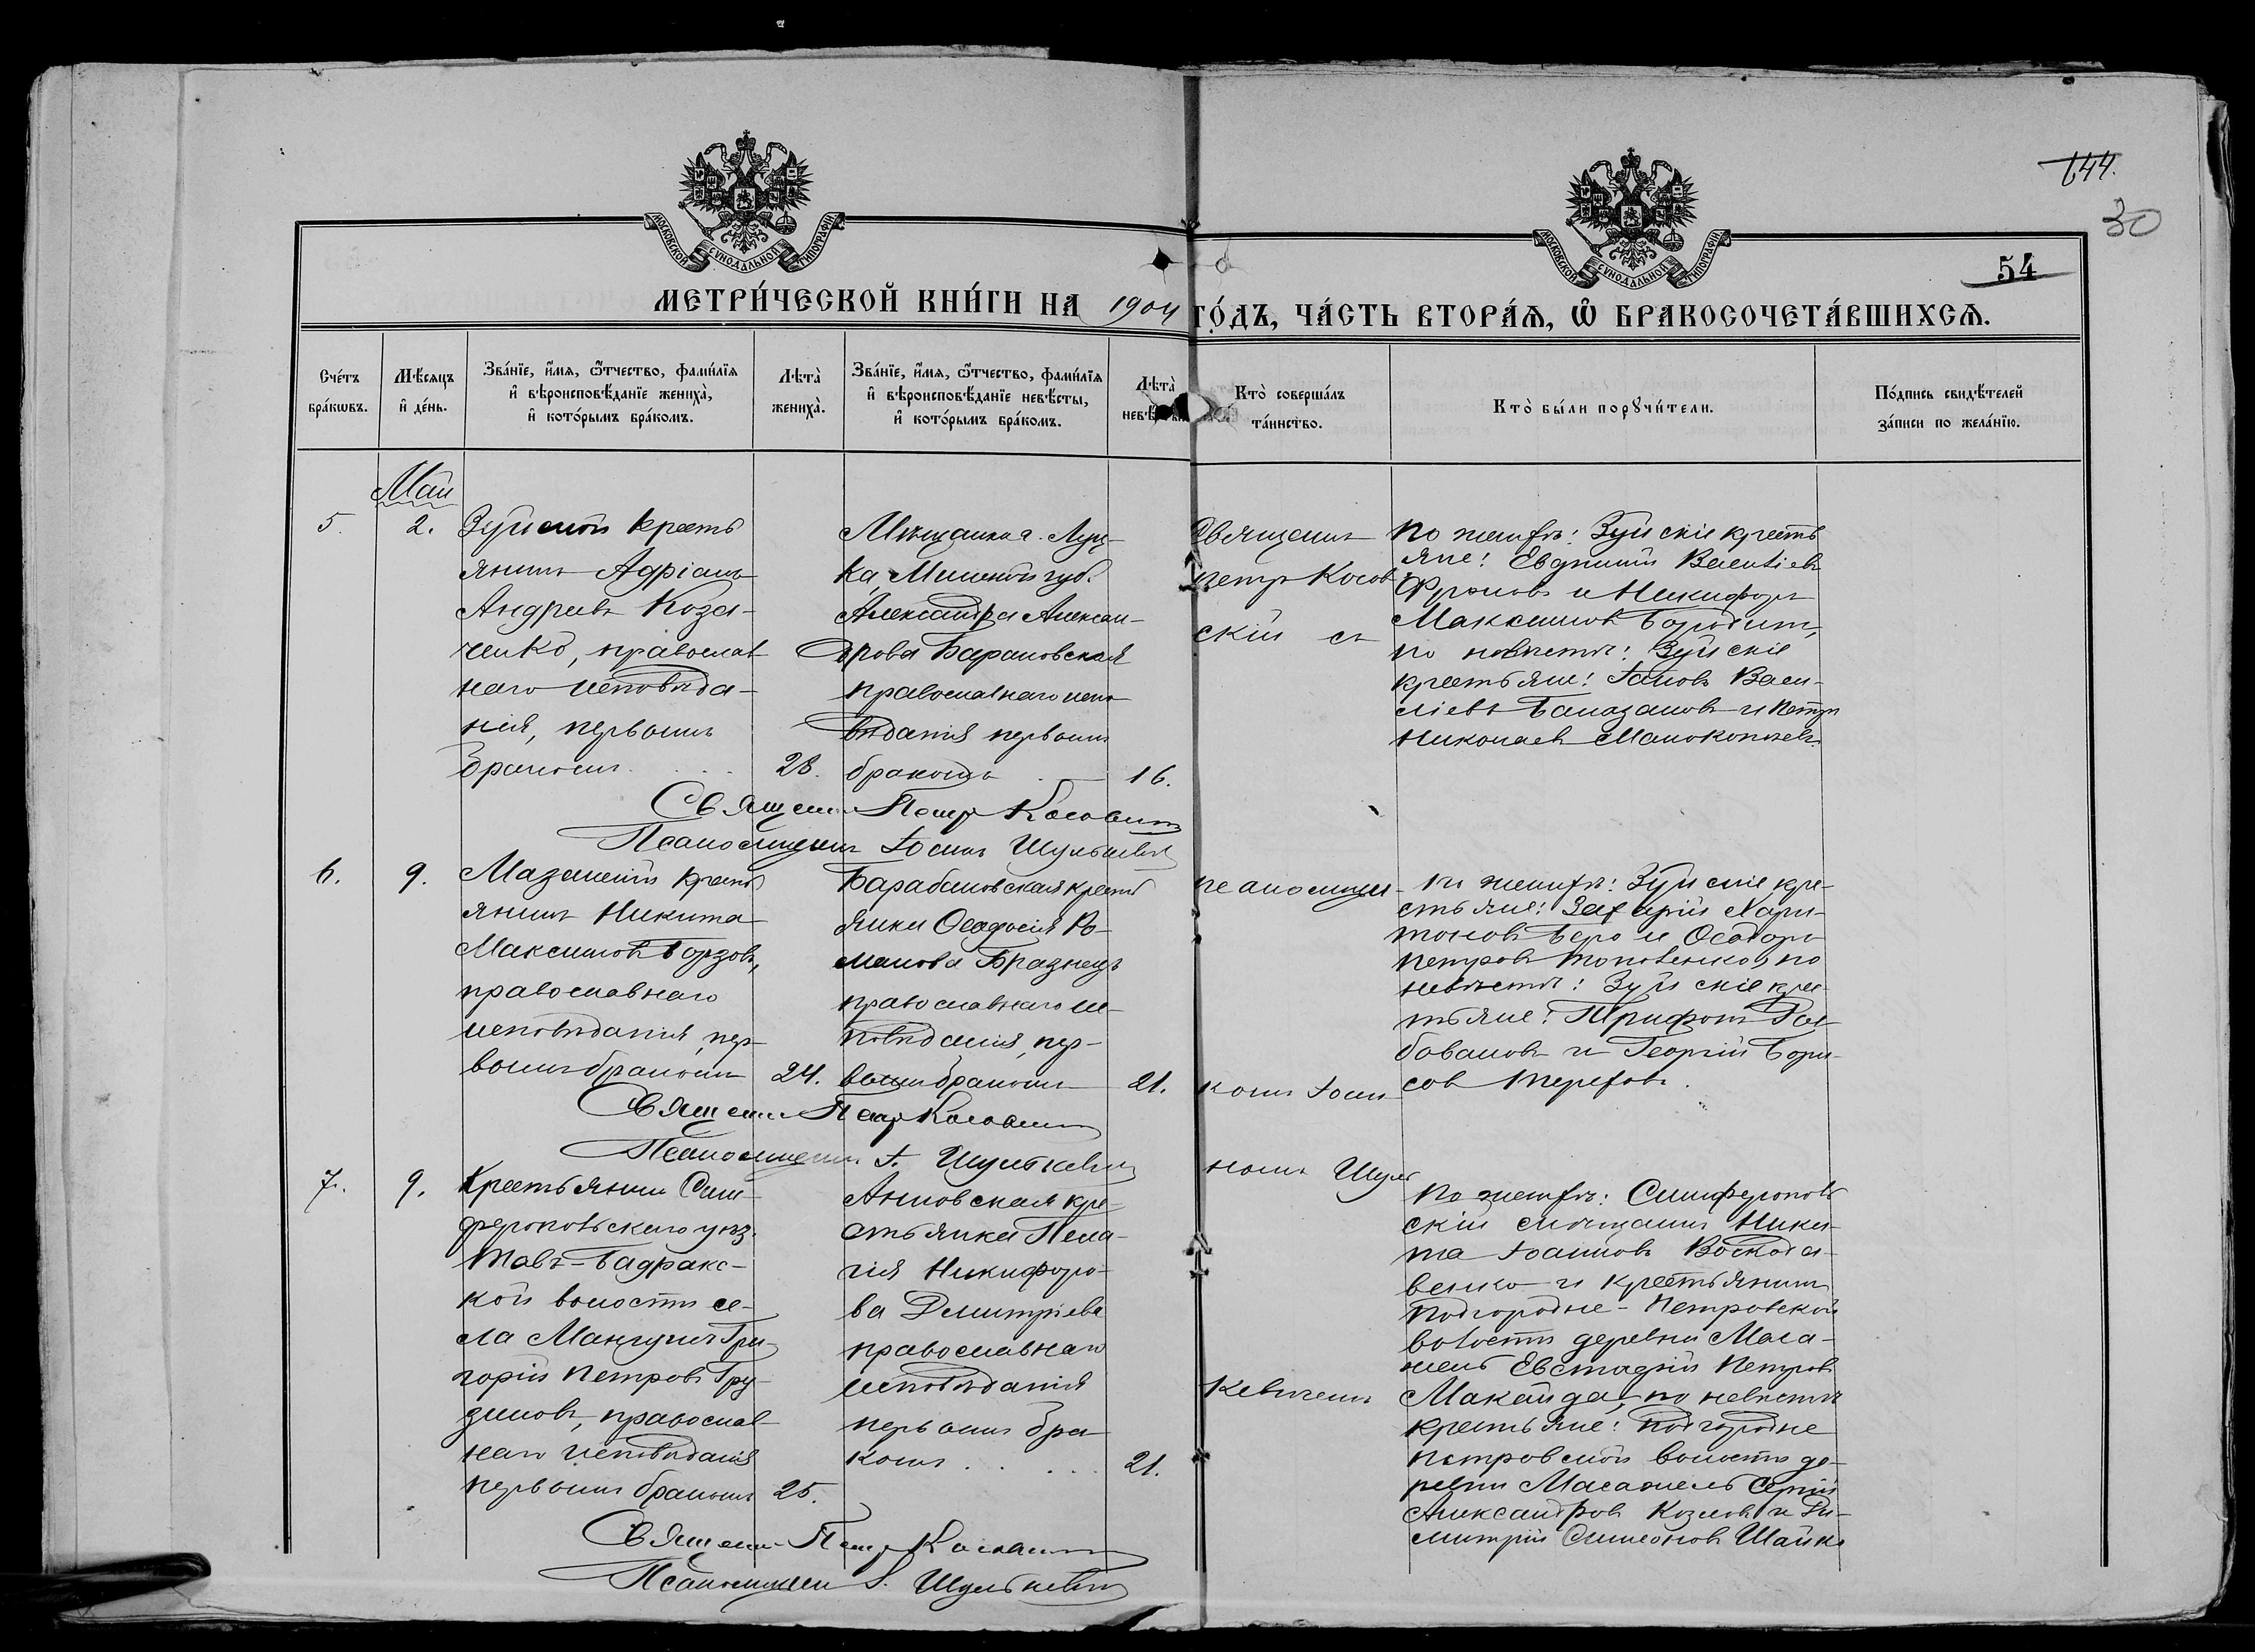 144.
30
54
МОСКОВСКОЙ СУНОДАЛЬНОЙ ТИПОГРАФІИ
МОСКОВСКОЙ СУНОДАЛЬНОЙ ТИПОГРАФІИ
МЕТРИ́ЧЕСКОЙ КНИ́ГИ НА 1904 ГО́ДЪ, ЧА́СТЬ ВТОРА́Ѧ, Ѽ БРАКОСОЧЕТА́ВШИХСѦ.
Сче́тъ бра́кѡвъ.
Мѣ́сѧцъ и҆ де́нь.
Зва́нїе, и҆́мѧ, ѻ҆́тчество, фамы́лїѧ и҆ вѣроисповѣ́данїе жениха̀, и҆ кото́рымъ бра́комъ.
Лѣта̀ жениха̀.
Зва́нїе, и҆́мѧ, ѻ҆́тчество, фами́лїѧ и҆ вѣроисповѣ́данїе невѣ́сты, и҆ кото́рымъ бра́комъ.
Лѣта̀
Кто̀ соверша́лъ та́инство.
Кто̀ бы́ли порꙋчи́тели.
По́дпись свидѣ́телей за́писи по жела́нїю.
Май
5.
2.
Зуйской кресть
янинъ Адріанъ
Андреевъ Коза-
ченко, православ
наго исповѣда-
нія, первымъ
бракомъ
28.
Мѣщанка г. Луц-
ка, Минской губ.
Александра Алексан-
дрова Барановская
православнаго испо
вѣданія первымъ
бракомъ
16.
Священникъ
Петръ Косов
скій съ
По женихѣ: Зуйскіе кресть
яне: Евдокимъ Васильевъ
Фроловъ и Никифоръ
Максимовъ Бородинъ,
по невѣстѣ: Зуйскіе
крестьяне: Іаковъ Васи-
ліевъ Балабановъ и Петръ
Николаевъ
Священ. Петръ Косовскій
Псаломщикъ Іоаннъ Шулькевичъ
6.
9.
Мазанскій кресть
янинъ Никита
Максимовъ Борзовъ,
православнаго
исповѣданія, пер-
вымъ бракомъ
24.
Барабановская кресть
янка Ѳеодосія Ро-
манова Бразнецъ
православнаго ис-
повѣданія, пер-
вымъ бракомъ
21.
псаломщи-
комъ Іоан-
номъ Шуль
кевичемъ
По женихѣ: Зуйскіе кре-
стьяне: Захарій Хари-
тоновъ Беро и Ѳеодоръ
Петровъ Тополенко, по
невѣстѣ: Зуйскіе крес-
тьяне: Трифонъ
и Георгій Бори-
совъ Тереховъ.
Священ. Петръ Косовскій
Псаломщикъ І. Шулькевичъ
7.
9.
Крестьянинъ Сим-
феропольскаго уѣз.
Тавъ-Бадракс-
кой волости се-
ла Мангушъ Гри-
горій Петровъ Гру-
зиновъ, православ-
наго исповѣданія
первымъ бракомъ
25.
Анновская кре
стьянка Пела-
гія Никифоро-
ва Дмитріева
православнаго
исповѣданія
первымъ бра
комъ
21.
По женихѣ: Симферополь
скій мѣщанинъ Ники-
та Іоанновъ
и крестьянинъ
Подгородне-Петровской
волости деревни Маса-
нель Евстафій Петровъ
Макайда, по невѣстѣ
крестьяне: Подгородне
Петровской волости де-
ревни Масанель Сергій
Александровъ Козловъ и Ди-
митрій Симеоновъ Шайко
Священ. Петръ Косовскій
Псаломщикъ І. Шулькевичъ